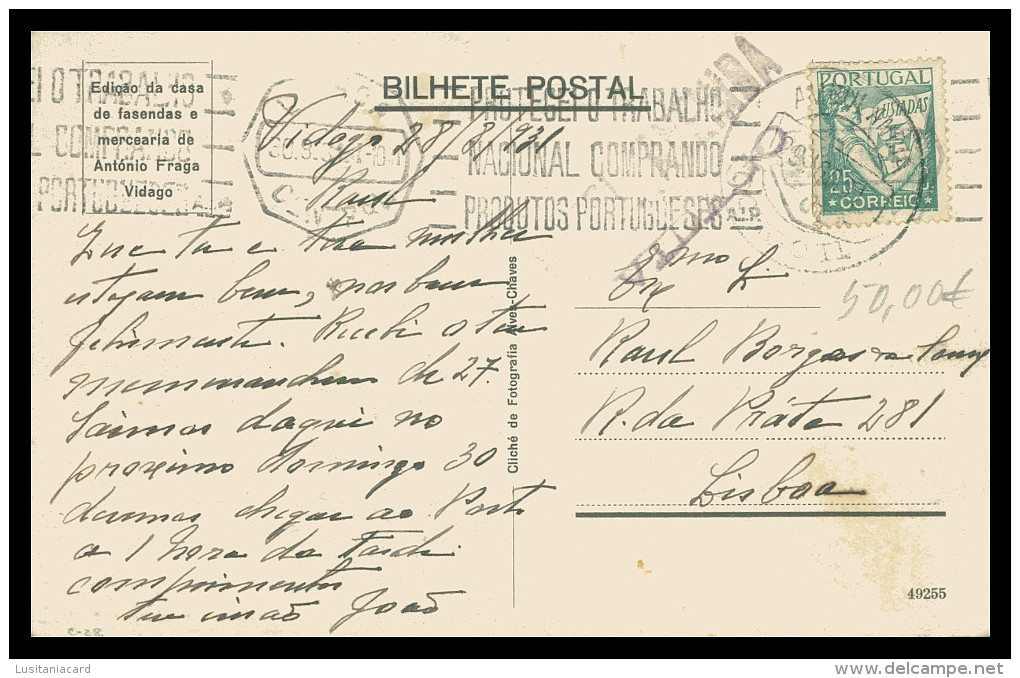 Edição da casa
de fasendas e
mercearia de
António Fraga
Vidago
BILHETE POSTAL
PROTEGEI O TRABALHO
NACIONAL COMPRANDO
PRODUTOS PORTUGUESES
PORTUGAL
LUSIADAS
25 C.
CORREIO
Vidago 28/8/931
Raul
Que tu e tua mulher
estejam bem, nos bem
felizmente. Recebi o teu
memorandum de 27.
Saimos daqui no
proximo domingo 30
devemos chegar ao Porto
a 1 hora da tarde
comprimentos
teu irmão João
Cliché de Fotografia Alves-Chaves
Exmo Sr
Raul Borges de
R. da Prata 281
Lisboa
50,00€
49255
Lusitaniacard
www.delcampe.net